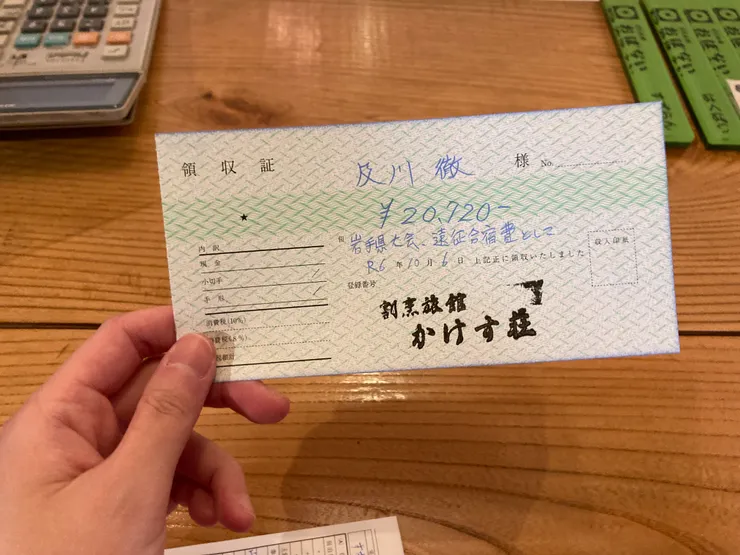 領収証
及川 徹 様 No.
★
¥20,720-
但 岩手県大会、遠征合宿費として
R6年10月6日 上記正に領収いたしました
収入印紙
内訳
現金
小切手
手形
消費税(10%)
消費税(8%)
登録番号
割烹旅館
かけす荘